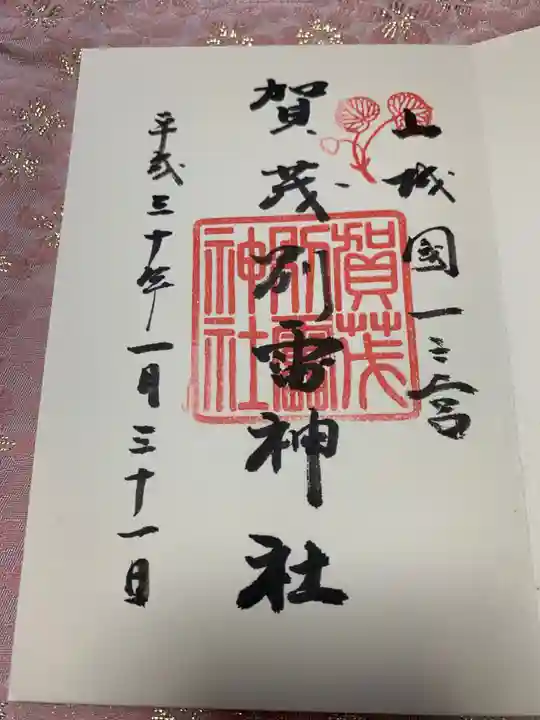 山城國一之宮
賀茂別雷神社
賀茂別雷神社
平成三十年一月三十一日